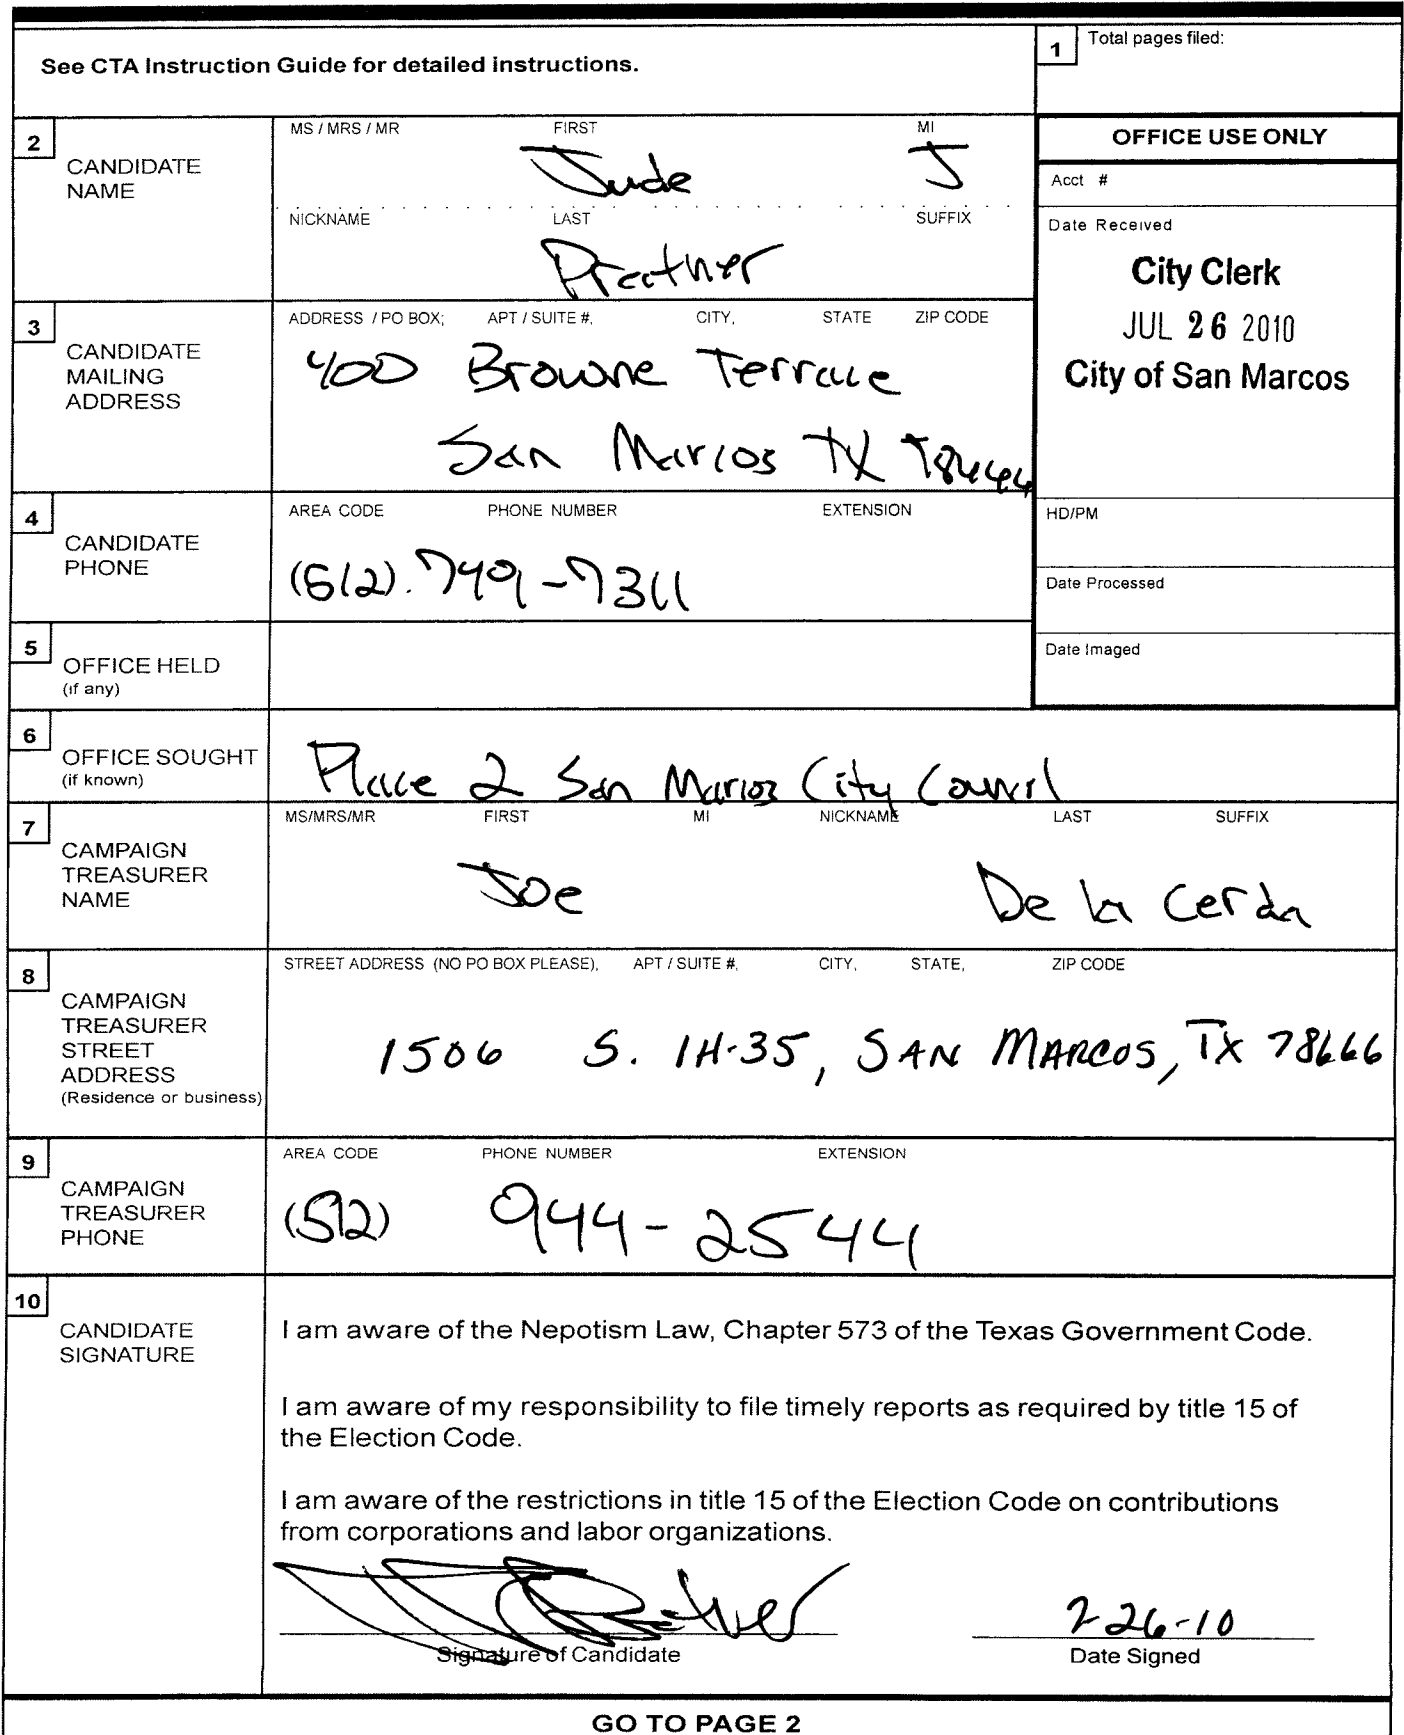 See CTA Instruction Guide for detailed instructions.
1 Total pages filed:
2 CANDIDATE NAME
MS / MRS / MR FIRST MI
Jude J
NICKNAME LAST SUFFIX
Prather
OFFICE USE ONLY
Acct #
Date Received
City Clerk
JUL 26 2010
City of San Marcos
HD/PM
Date Processed
Date Imaged
3 CANDIDATE MAILING ADDRESS
ADDRESS / PO BOX; APT / SUITE #, CITY, STATE ZIP CODE
400 Browne Terrace
San Marcos TX
4 CANDIDATE PHONE
AREA CODE PHONE NUMBER EXTENSION
(512). 749-7311
5 OFFICE HELD
(if any)
6 OFFICE SOUGHT
(if known)
Place 2 San Marcos City Council
7 CAMPAIGN TREASURER NAME
MS/MRS/MR FIRST MI NICKNAME LAST SUFFIX
Joe De la Cerda
8 CAMPAIGN TREASURER STREET ADDRESS
(Residence or business)
STREET ADDRESS (NO PO BOX PLEASE), APT / SUITE #, CITY, STATE, ZIP CODE
1506 S. IH-35, SAN MARCOS, TX 78666
9 CAMPAIGN TREASURER PHONE
AREA CODE PHONE NUMBER EXTENSION
(512) 944-2544
10 CANDIDATE SIGNATURE
I am aware of the Nepotism Law, Chapter 573 of the Texas Government Code.
I am aware of my responsibility to file timely reports as required by title 15 of
the Election Code.
I am aware of the restrictions in title 15 of the Election Code on contributions
from corporations and labor organizations.
7-26-10
Signature of Candidate Date Signed
GO TO PAGE 2